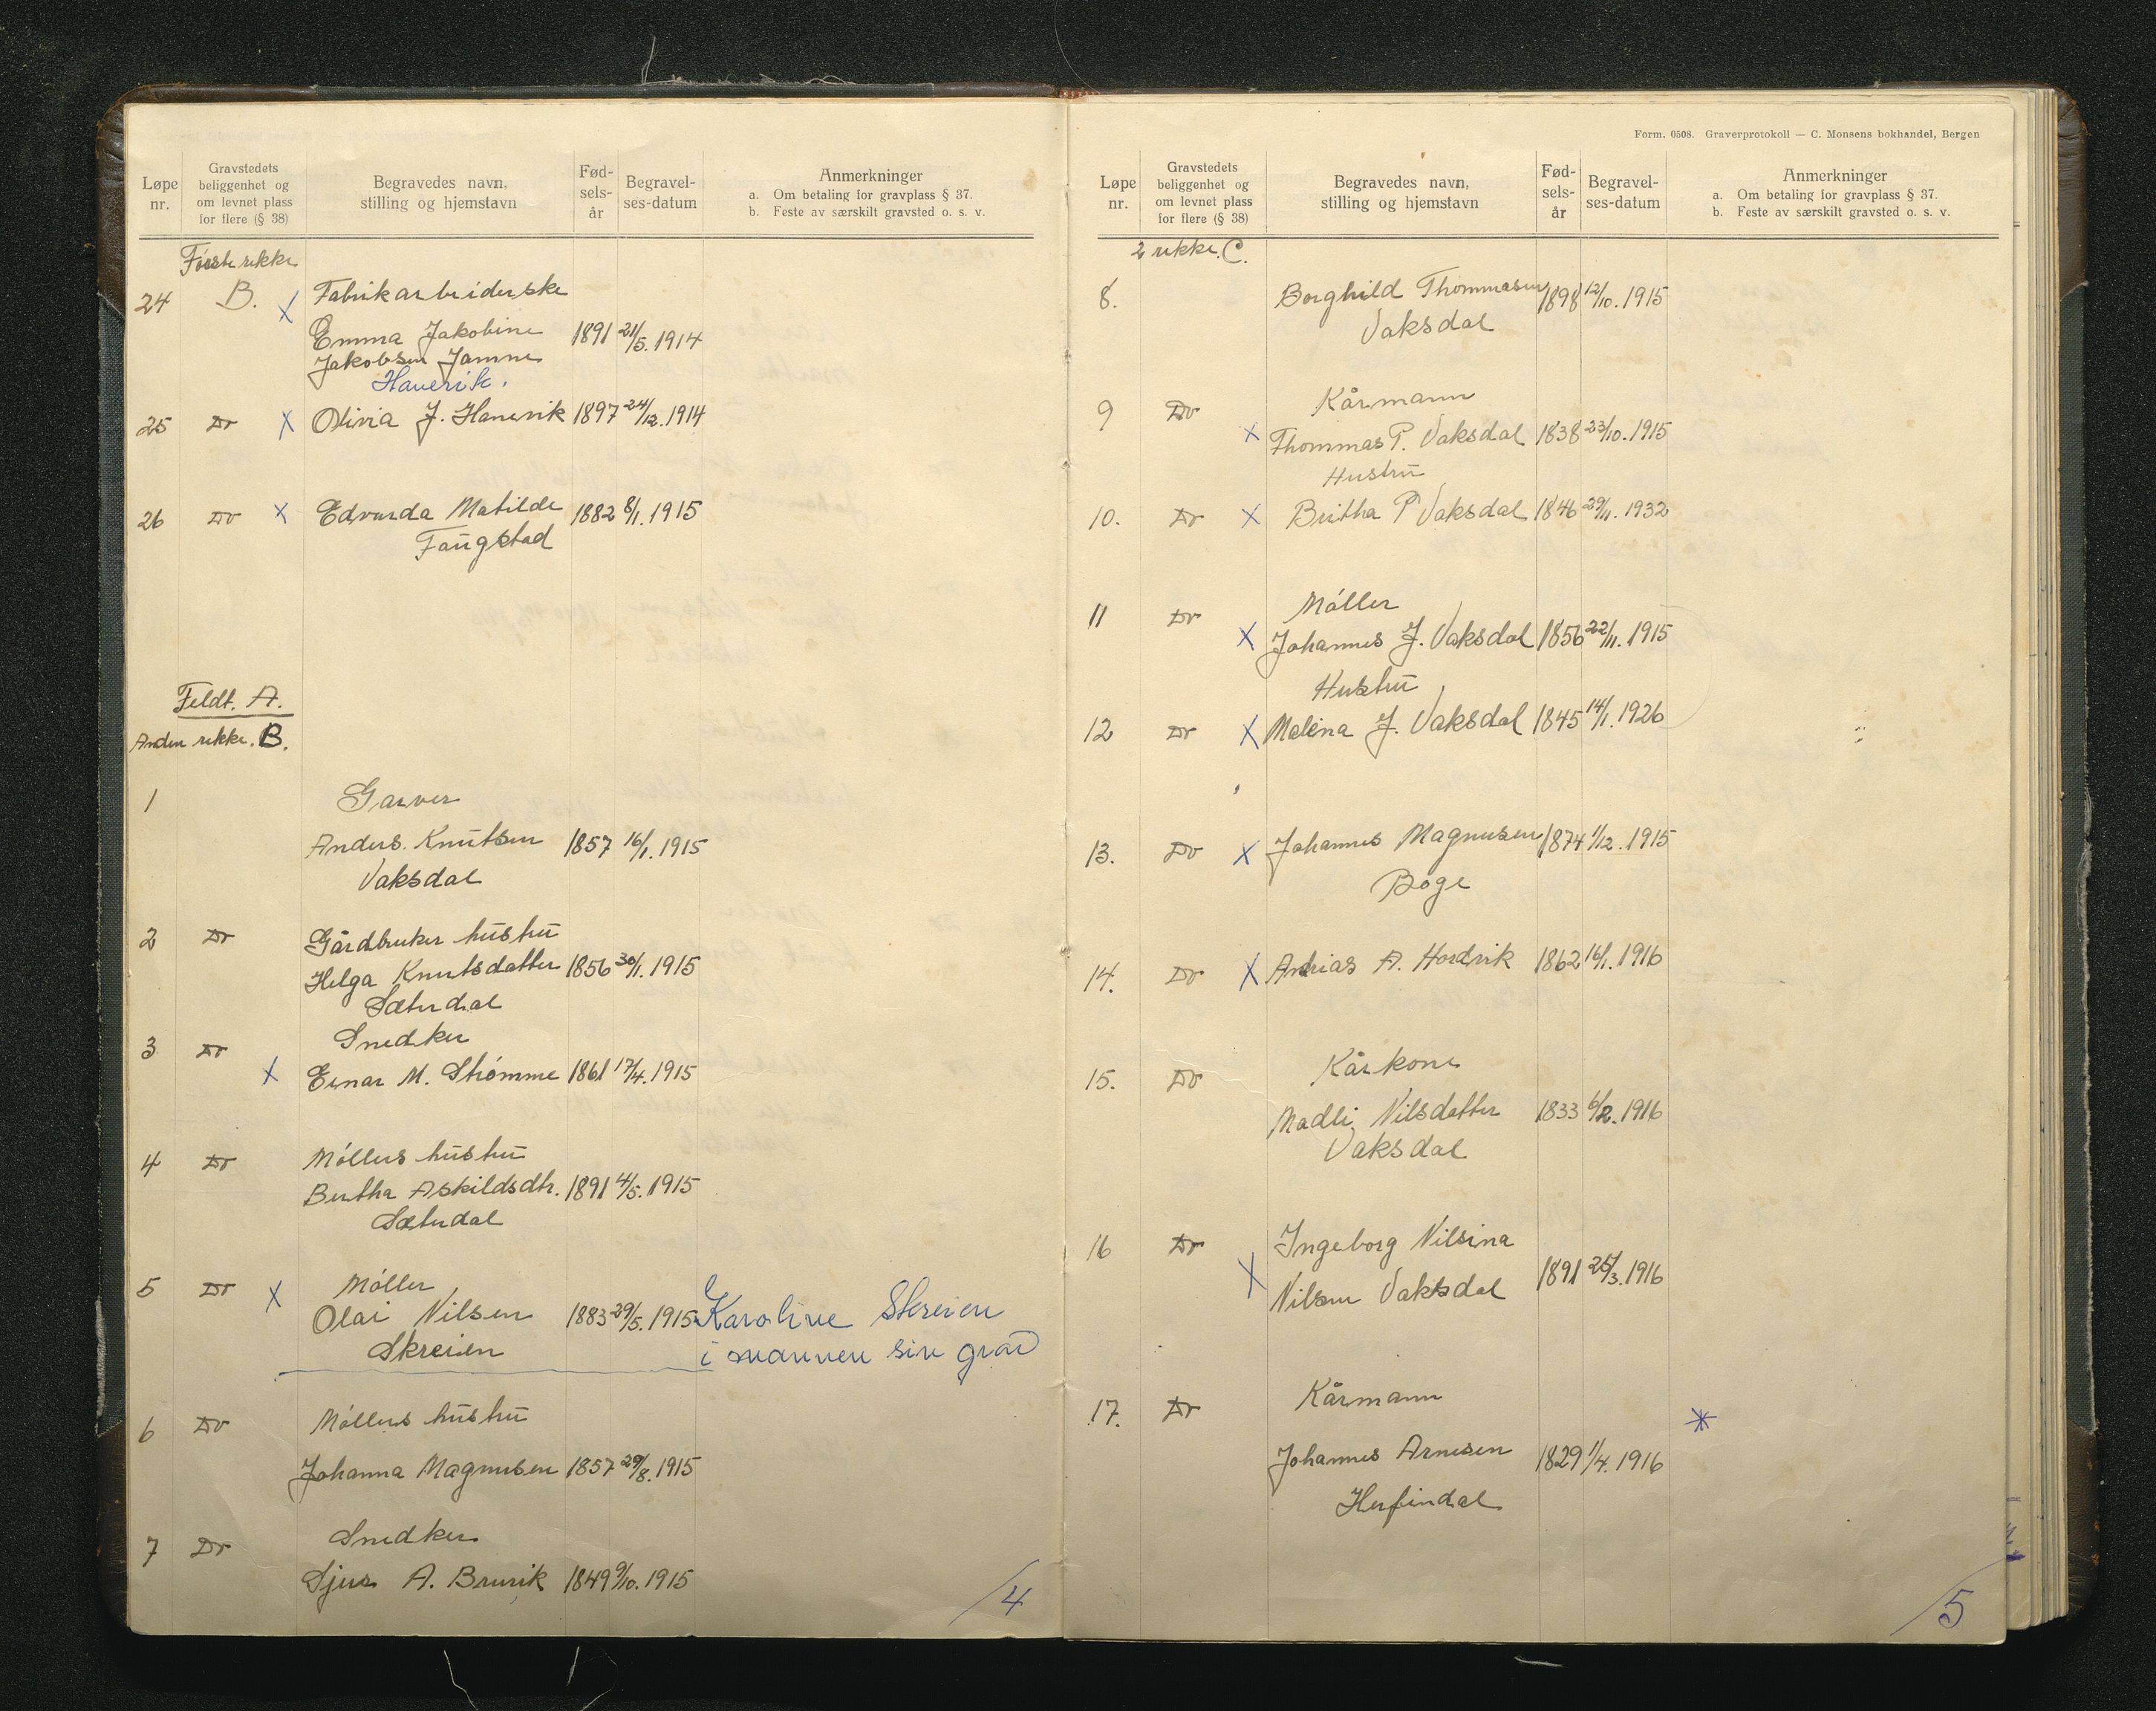 Løpe nr.
Gravstedets beliggenhet og om levnet plass for flere (§ 38)
Begravedes navn, stilling og hjemstavn
Fød-sels-år
Begravel-ses-datum
Anmerkninger
a. Om betaling for gravplass § 37.
b. Feste av særskilt gravsted o. s. v.
Første rekke
24 B. X Fabrikarbeiderske
Emma Jakobine 1891 21/5. 1914
Jakobsen Jamne
Hanevik.
25 Do X Olivia J. Hanevik 1897 24/12. 1914
26 Do X Edvarda Matilde 1882 8/1. 1915
Faugstad
Feldt. A.
Anden rekke. B.
1 Garver
Anders. Knutsen 1857 16/1. 1915
Vaksdal
2 Do Gårdbruker hustru
Helga Knutsdatter 1856 30/1. 1915
Sæterdal
3 Do Snedker
X Einar M. Strømme 1861 17/4. 1915
4 Do Møllers hustru
Bertha Askildsdtr. 1891 4/5. 1915
Sæterdal
5 Do X Møller
Olai Nilsen 1883 29/5. 1915 Karoline Skreien
Skreien i mannen sin grav
6 Do Møllers hustru
Johanna Magnusen 1857 29/8. 1915
7 Do Snedker
Sjur A. Bruvik 1849 9/10. 1915
/4
Form. 0508. Graverprotokoll — C. Monsens bokhandel, Bergen
Løpe nr.
Gravstedets beliggenhet og om levnet plass for flere (§ 38)
Begravedes navn, stilling og hjemstavn
Fød-sels-år
Begravel-ses-datum
Anmerkninger
a. Om betaling for gravplass § 37.
b. Feste av særskilt gravsted o. s. v.
2 rekke. C.
8. Borghild Thommasen 1898 12/10. 1915
Vaksdal
9 Do Kårmann
X Thommas P. Vaksdal 1838 23/10. 1915
Hustru
10. Do X Britha P Vaksdal 1846 29/11. 1932
11 Do Møller
X Johannes J. Vaksdal 1856 22/11. 1915
Hustru
12 Do X Malena J. Vaksdal 1845 14/1. 1926
13. Do X Johannes Magnusen 1874 1/12. 1915
Boge
14. Do X Andrias A. Hordvik 1862 16/1. 1916
15. Do Kårkone
Madli Nilsdatter 1833 6/2. 1916
Vaksdal
16 Do Ingeborg Nilsina
X Nilsen Vaksdal 1891 25/3. 1916
17. Do Kårmann
Johannes Arnesen 1829 1/4. 1916
Herfindal
/5